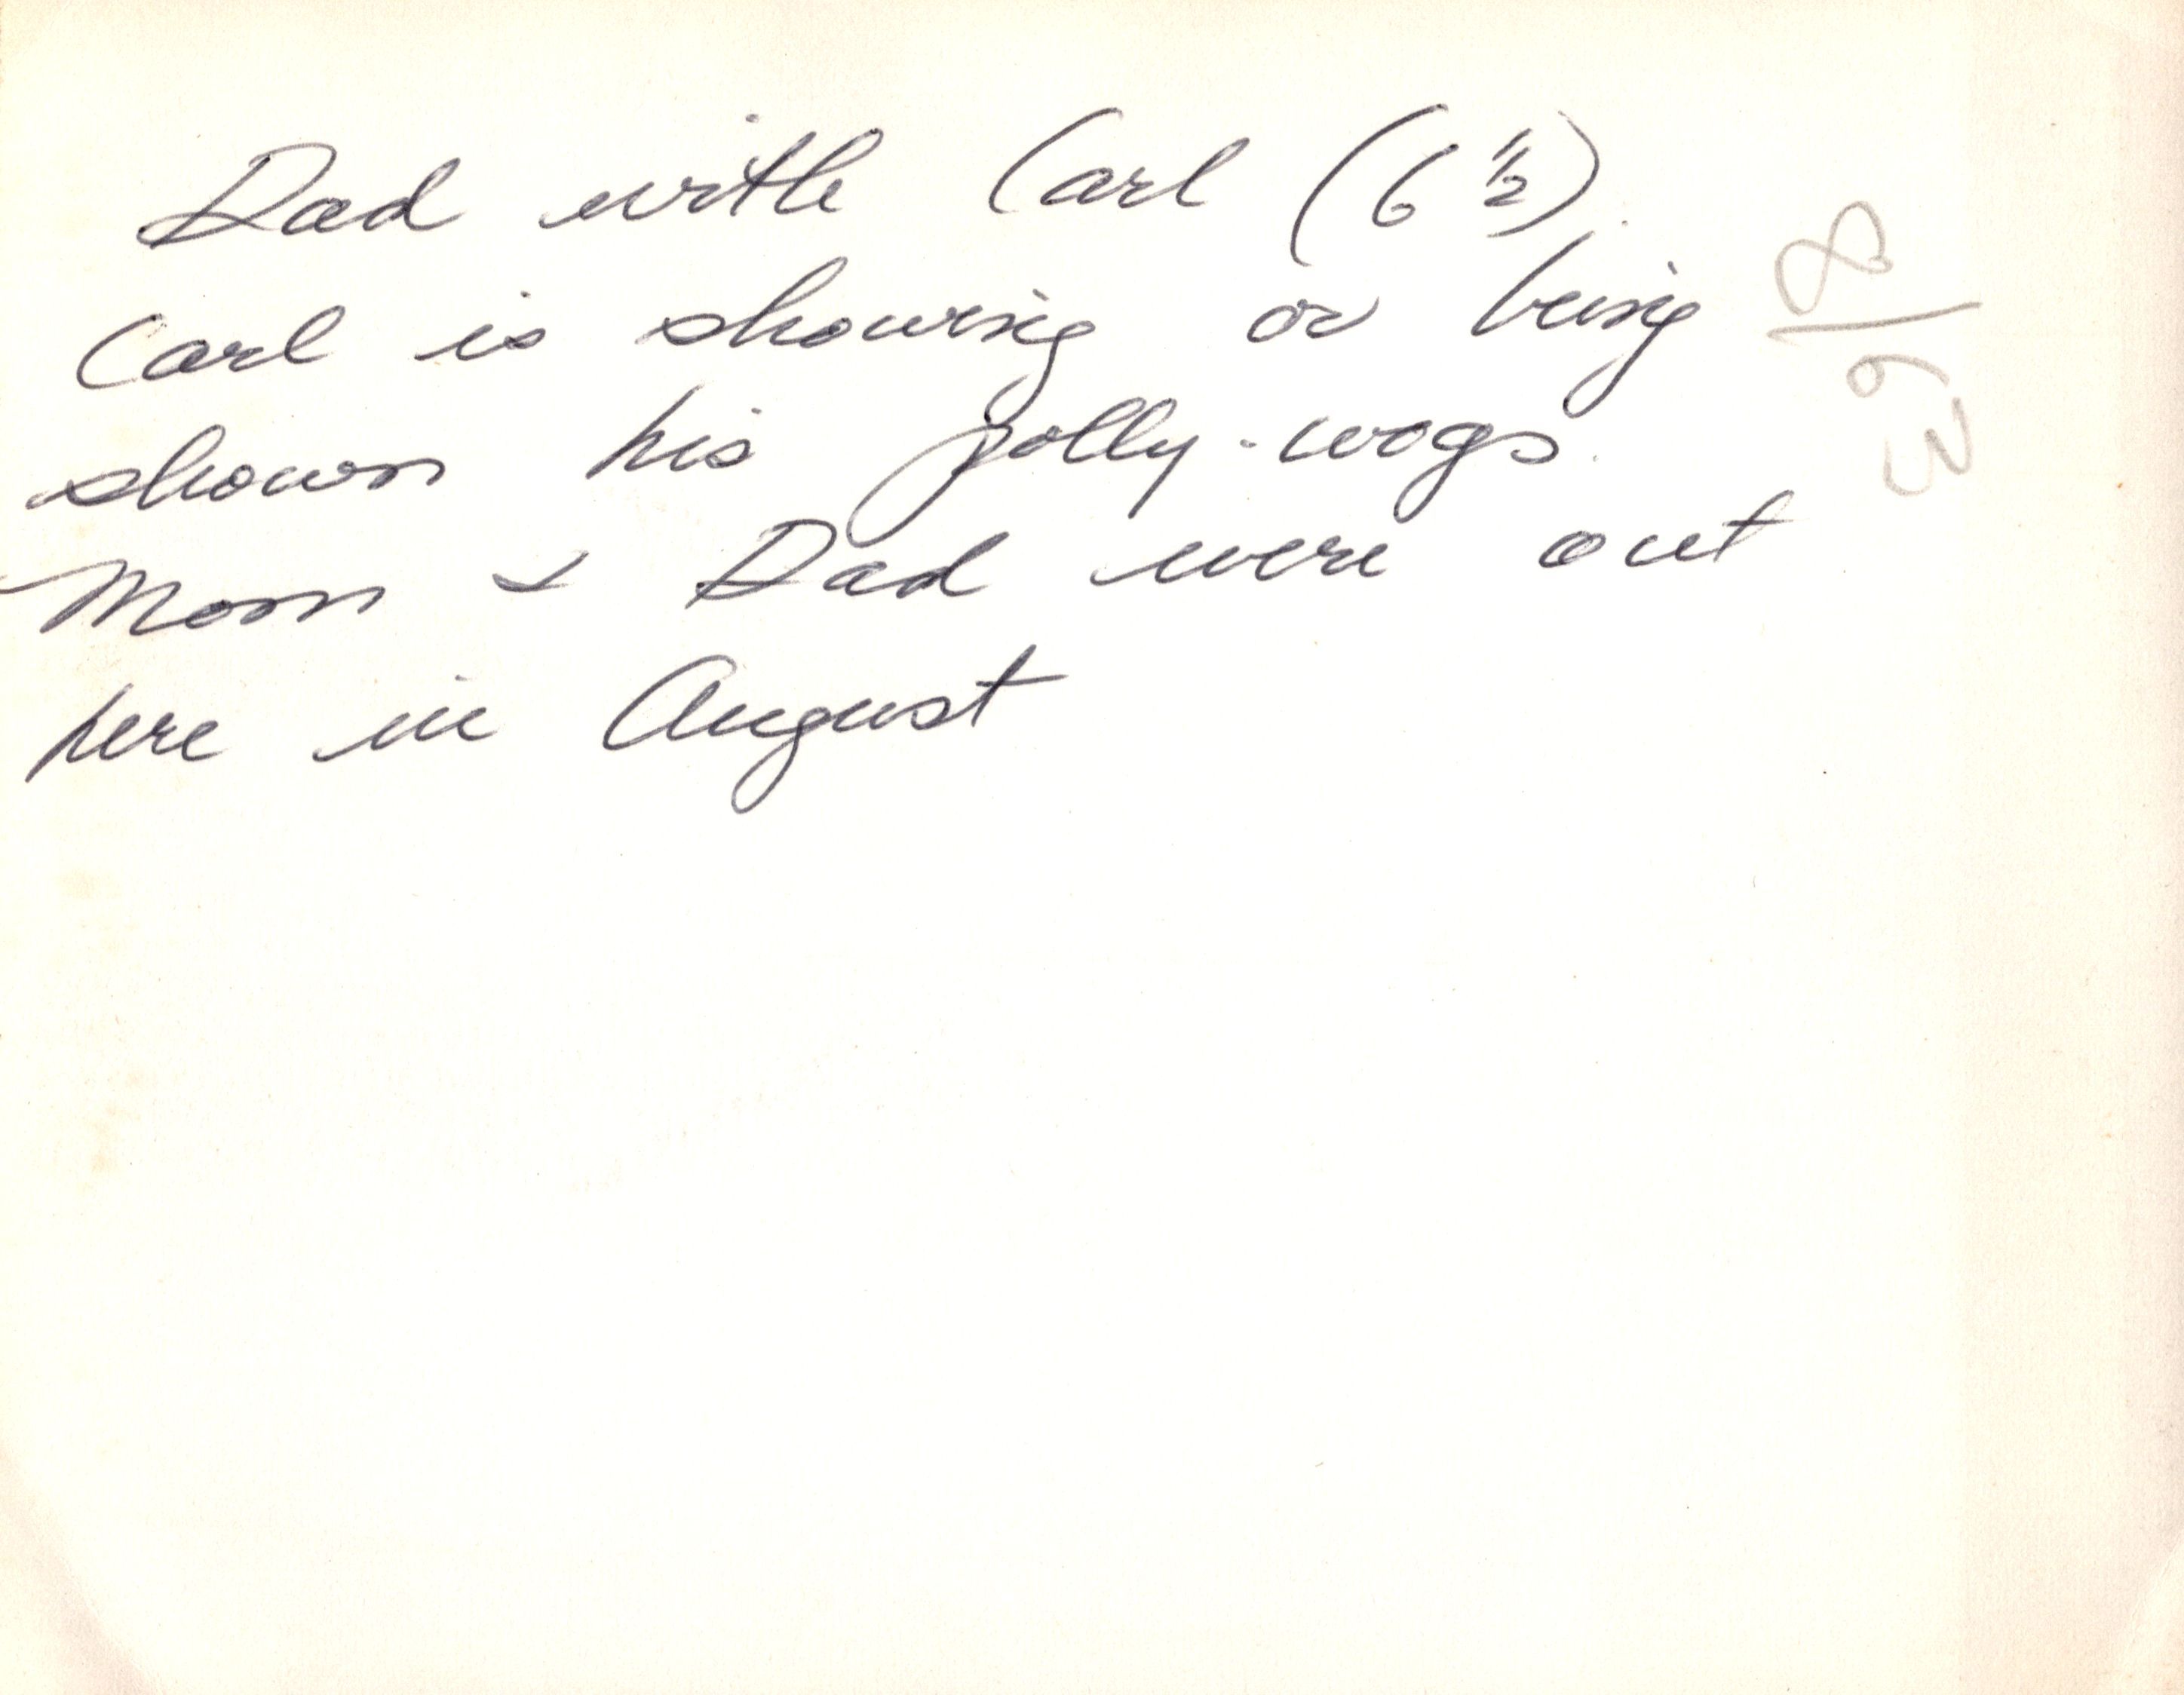 Dad with Carl (6 1/2).
Carl is showing or being
shown his polly-wogs.
Mom & Dad were out
here in August
8/63